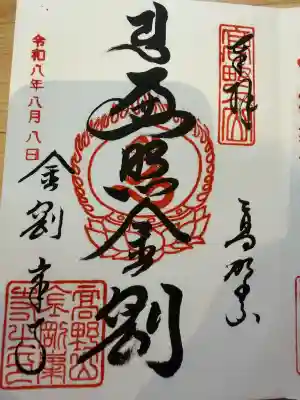 奉拝
高野山
遍照金剛
令和八年八月八日
金剛峯寺
高野山
金剛峯